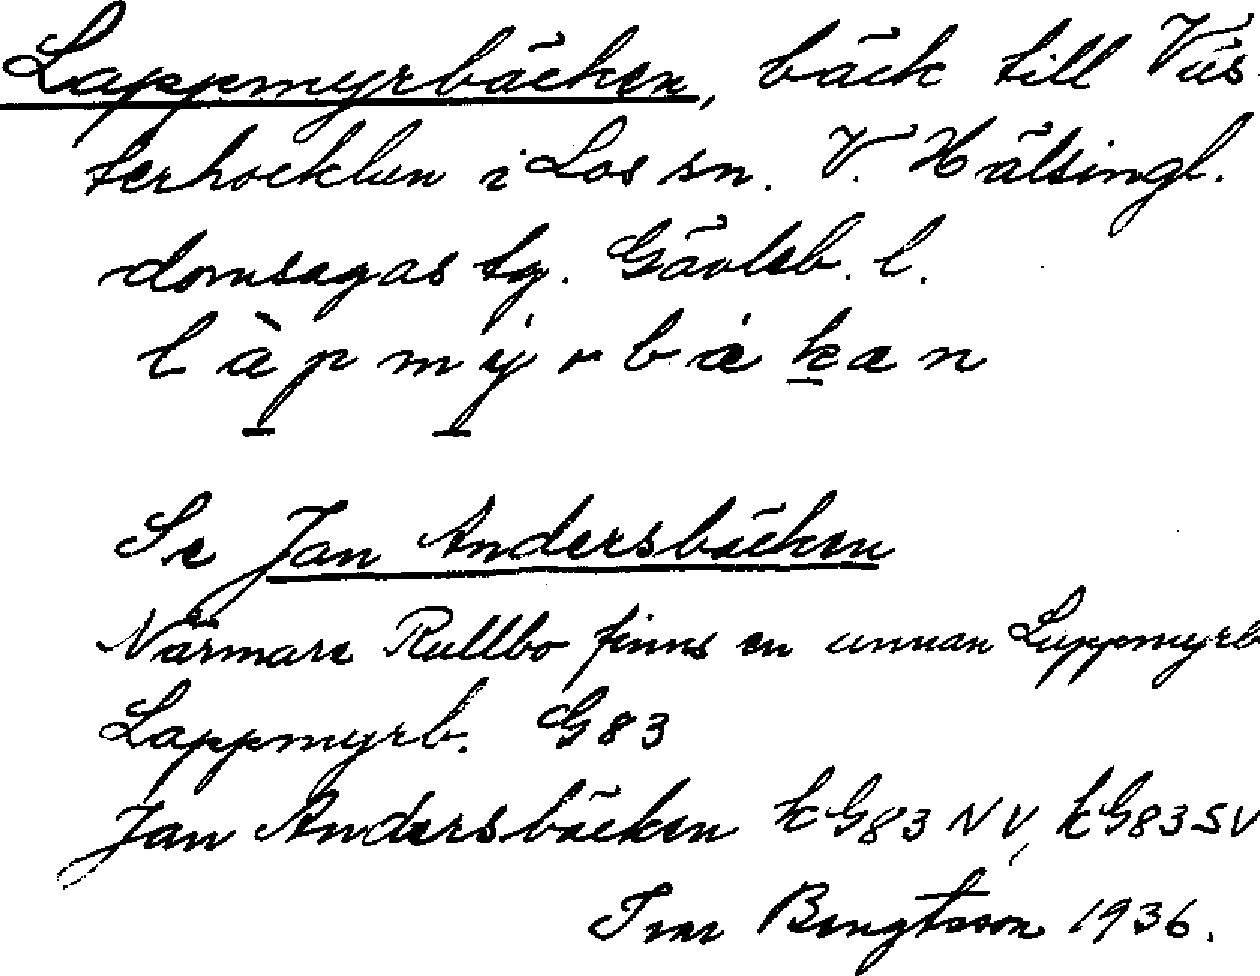 Lappmyrbäcken, bäck till Väs-
terhocklan i Los sn. V. Hälsingl.
domsagas tg. Gävleb. l.
làpmýrbækan
Se Jan Andersbäcken
Närmare Rullbo finns en annan Lappmyrb
Lappmyrb. G83
Jan Andersbäcken kG83NV, kG83SV
Ivar Bengtsson 1936.